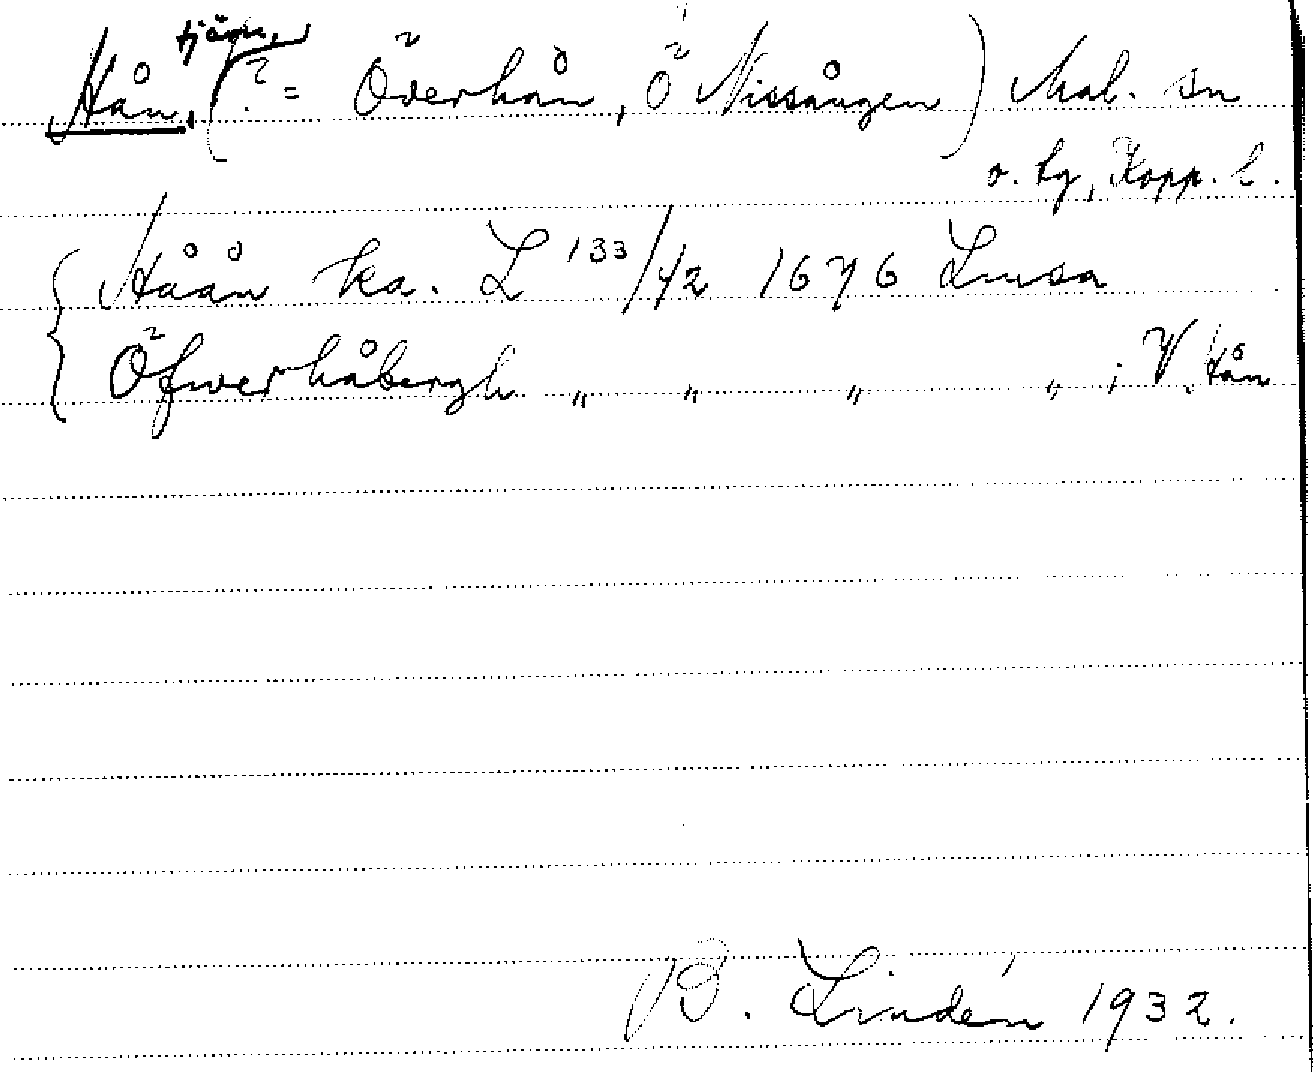 tjärn,
Hån, (? = Överhån, Ö Nissången) Mal. sn
o. tg, Kopp. l.
Håån ka. L 133/42 1676 Limsa
Öfwerhåbergh " " " " i V. Hån
B. Lindén 1932.